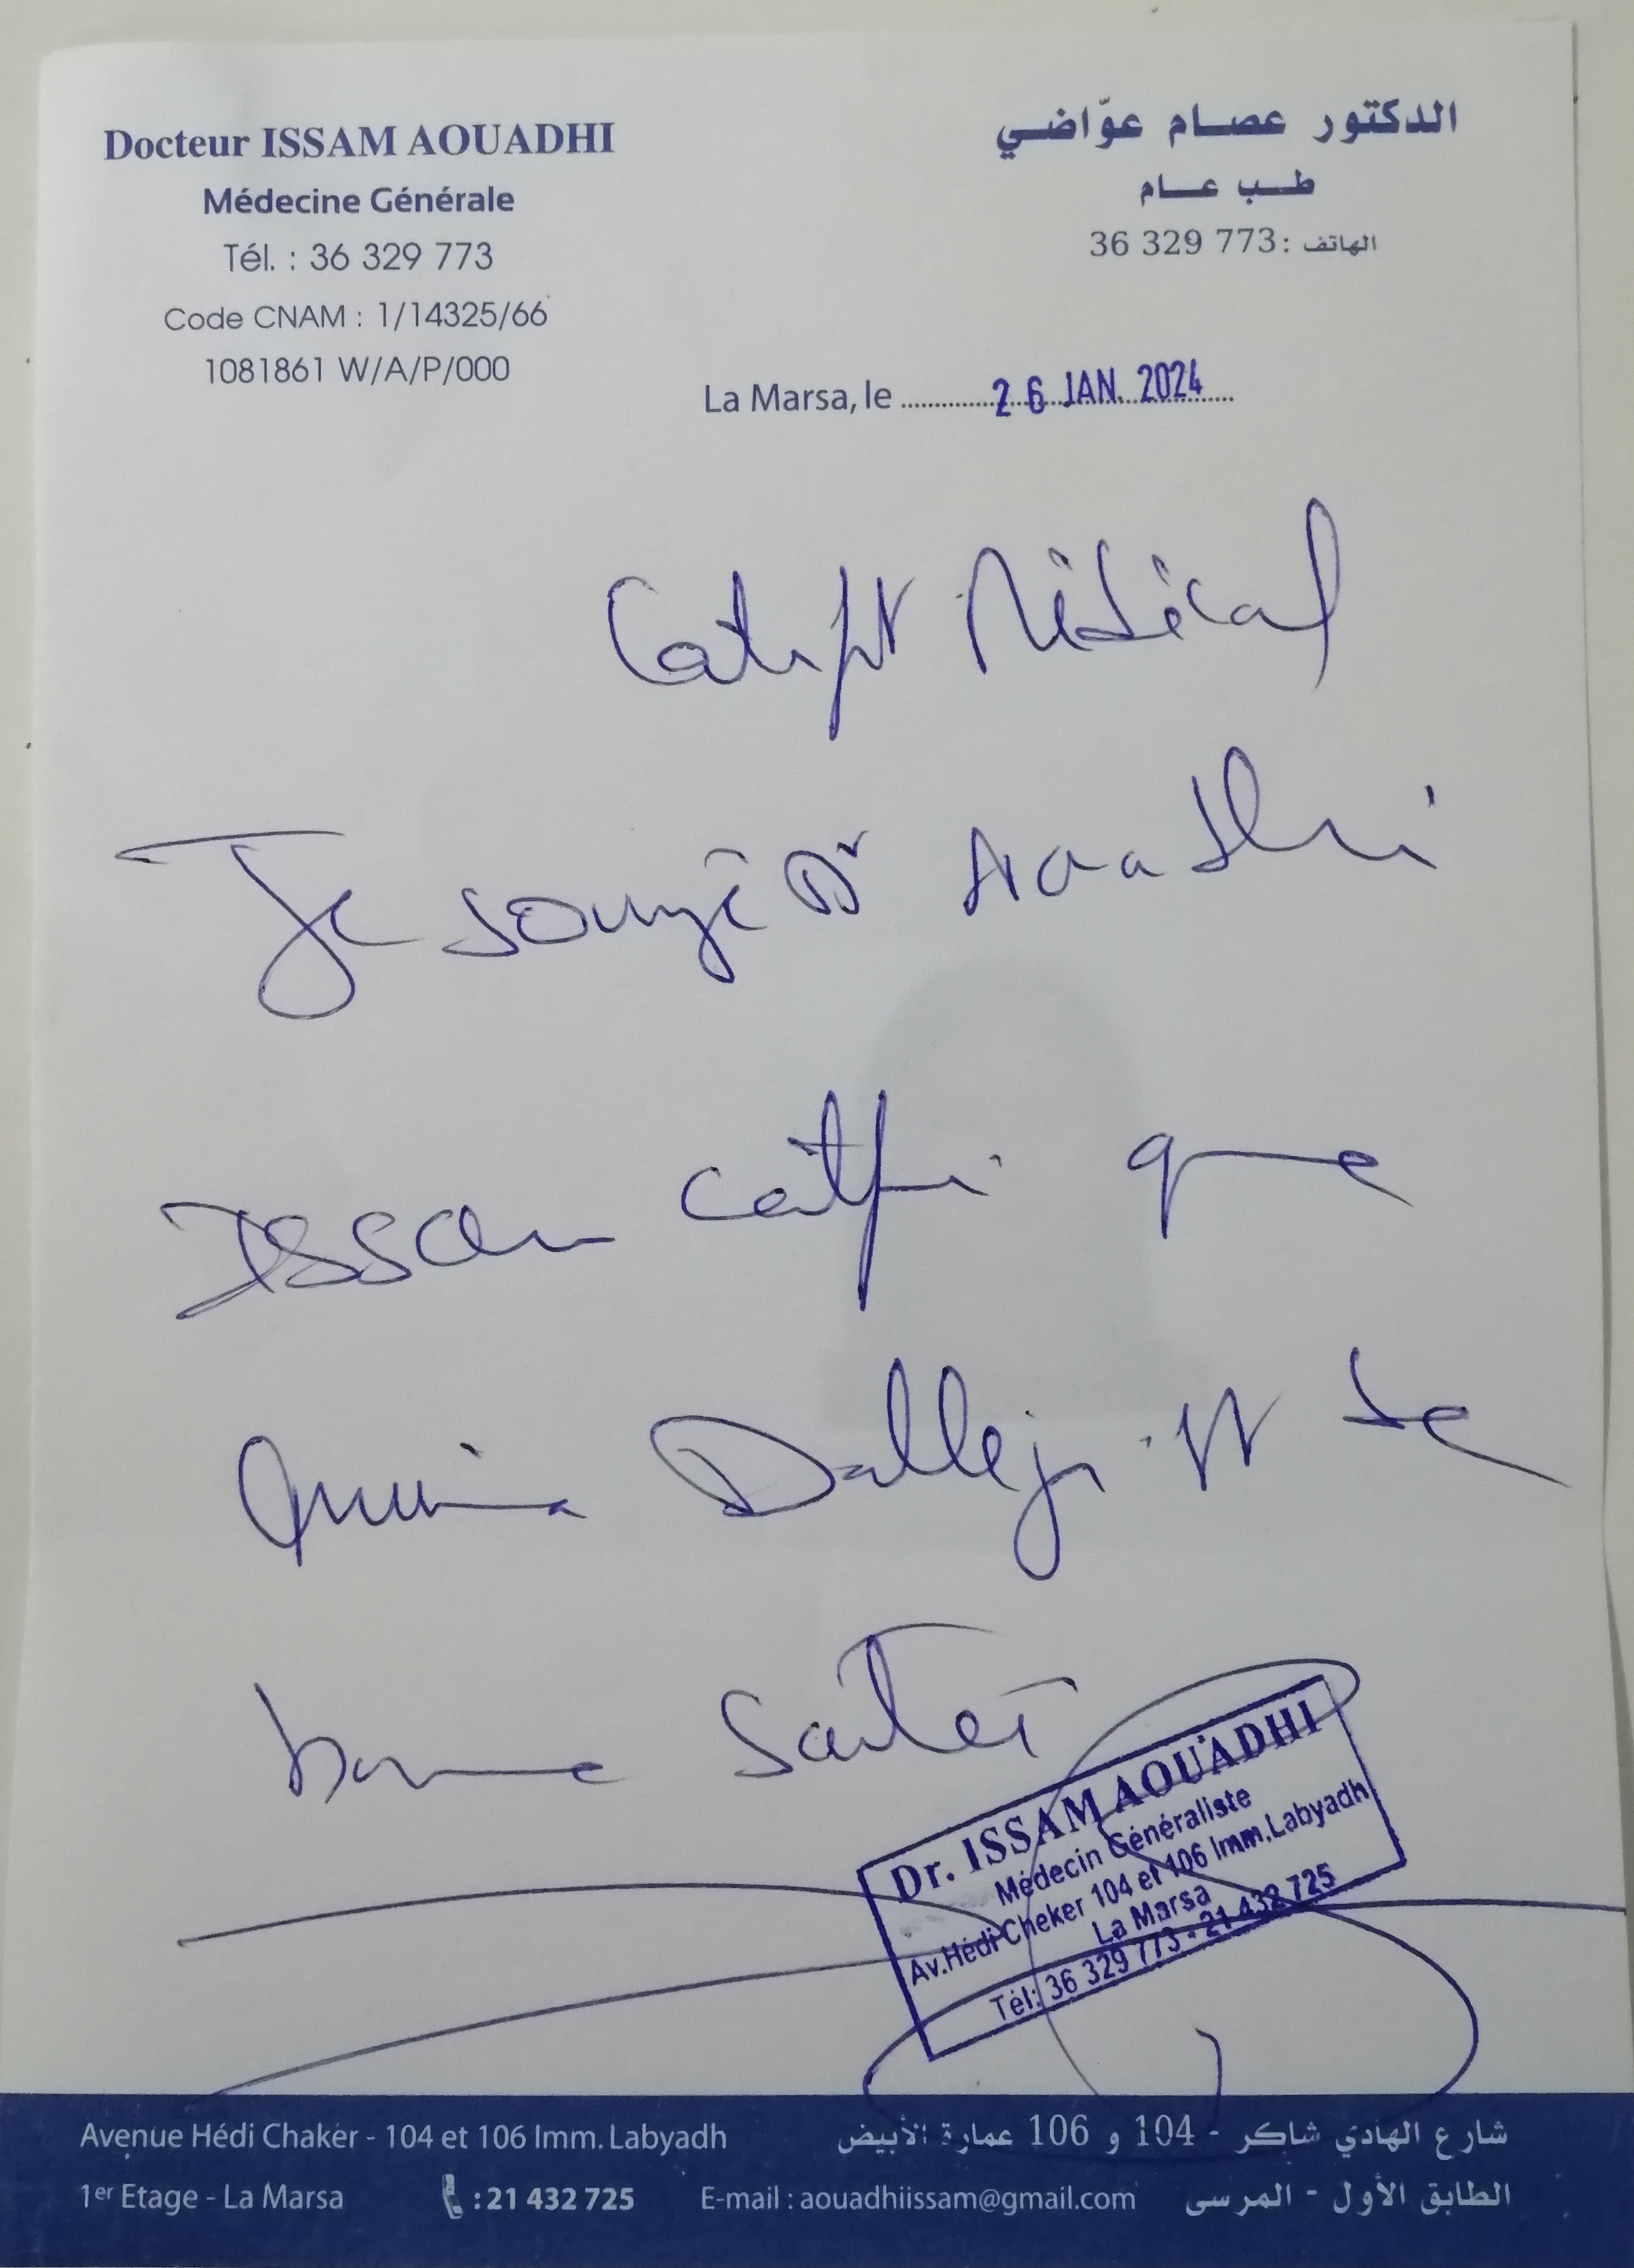 Docteur ISSAM AOUADHI
Médecine Générale
Tél. : 36 329 773
Code CNAM : 1/14325/66
1081861 W/A/P/000
الدكتور عصام عوّاضي
طب عام
الهاتف : 36 329 773
La Marsa, le 26 JAN. 2024
Médical
Je Dr Aouadhi
Issam que
de
bonne
Dr. ISSAM AOUADHI
Médecin Généraliste
Av.Hédi Cheker 104 et 106 Imm.Labyadh
La Marsa
Tél: 36 329 773 - 21 432 725
Avenue Hédi Chaker - 104 et 106 Imm. Labyadh
1er Etage - La Marsa : 21 432 725 E-mail : aouadhiissam@gmail.com
شارع الهادي شاكر - 104 و 106 عمارة الأبيض
الطابق الأول - المرسى